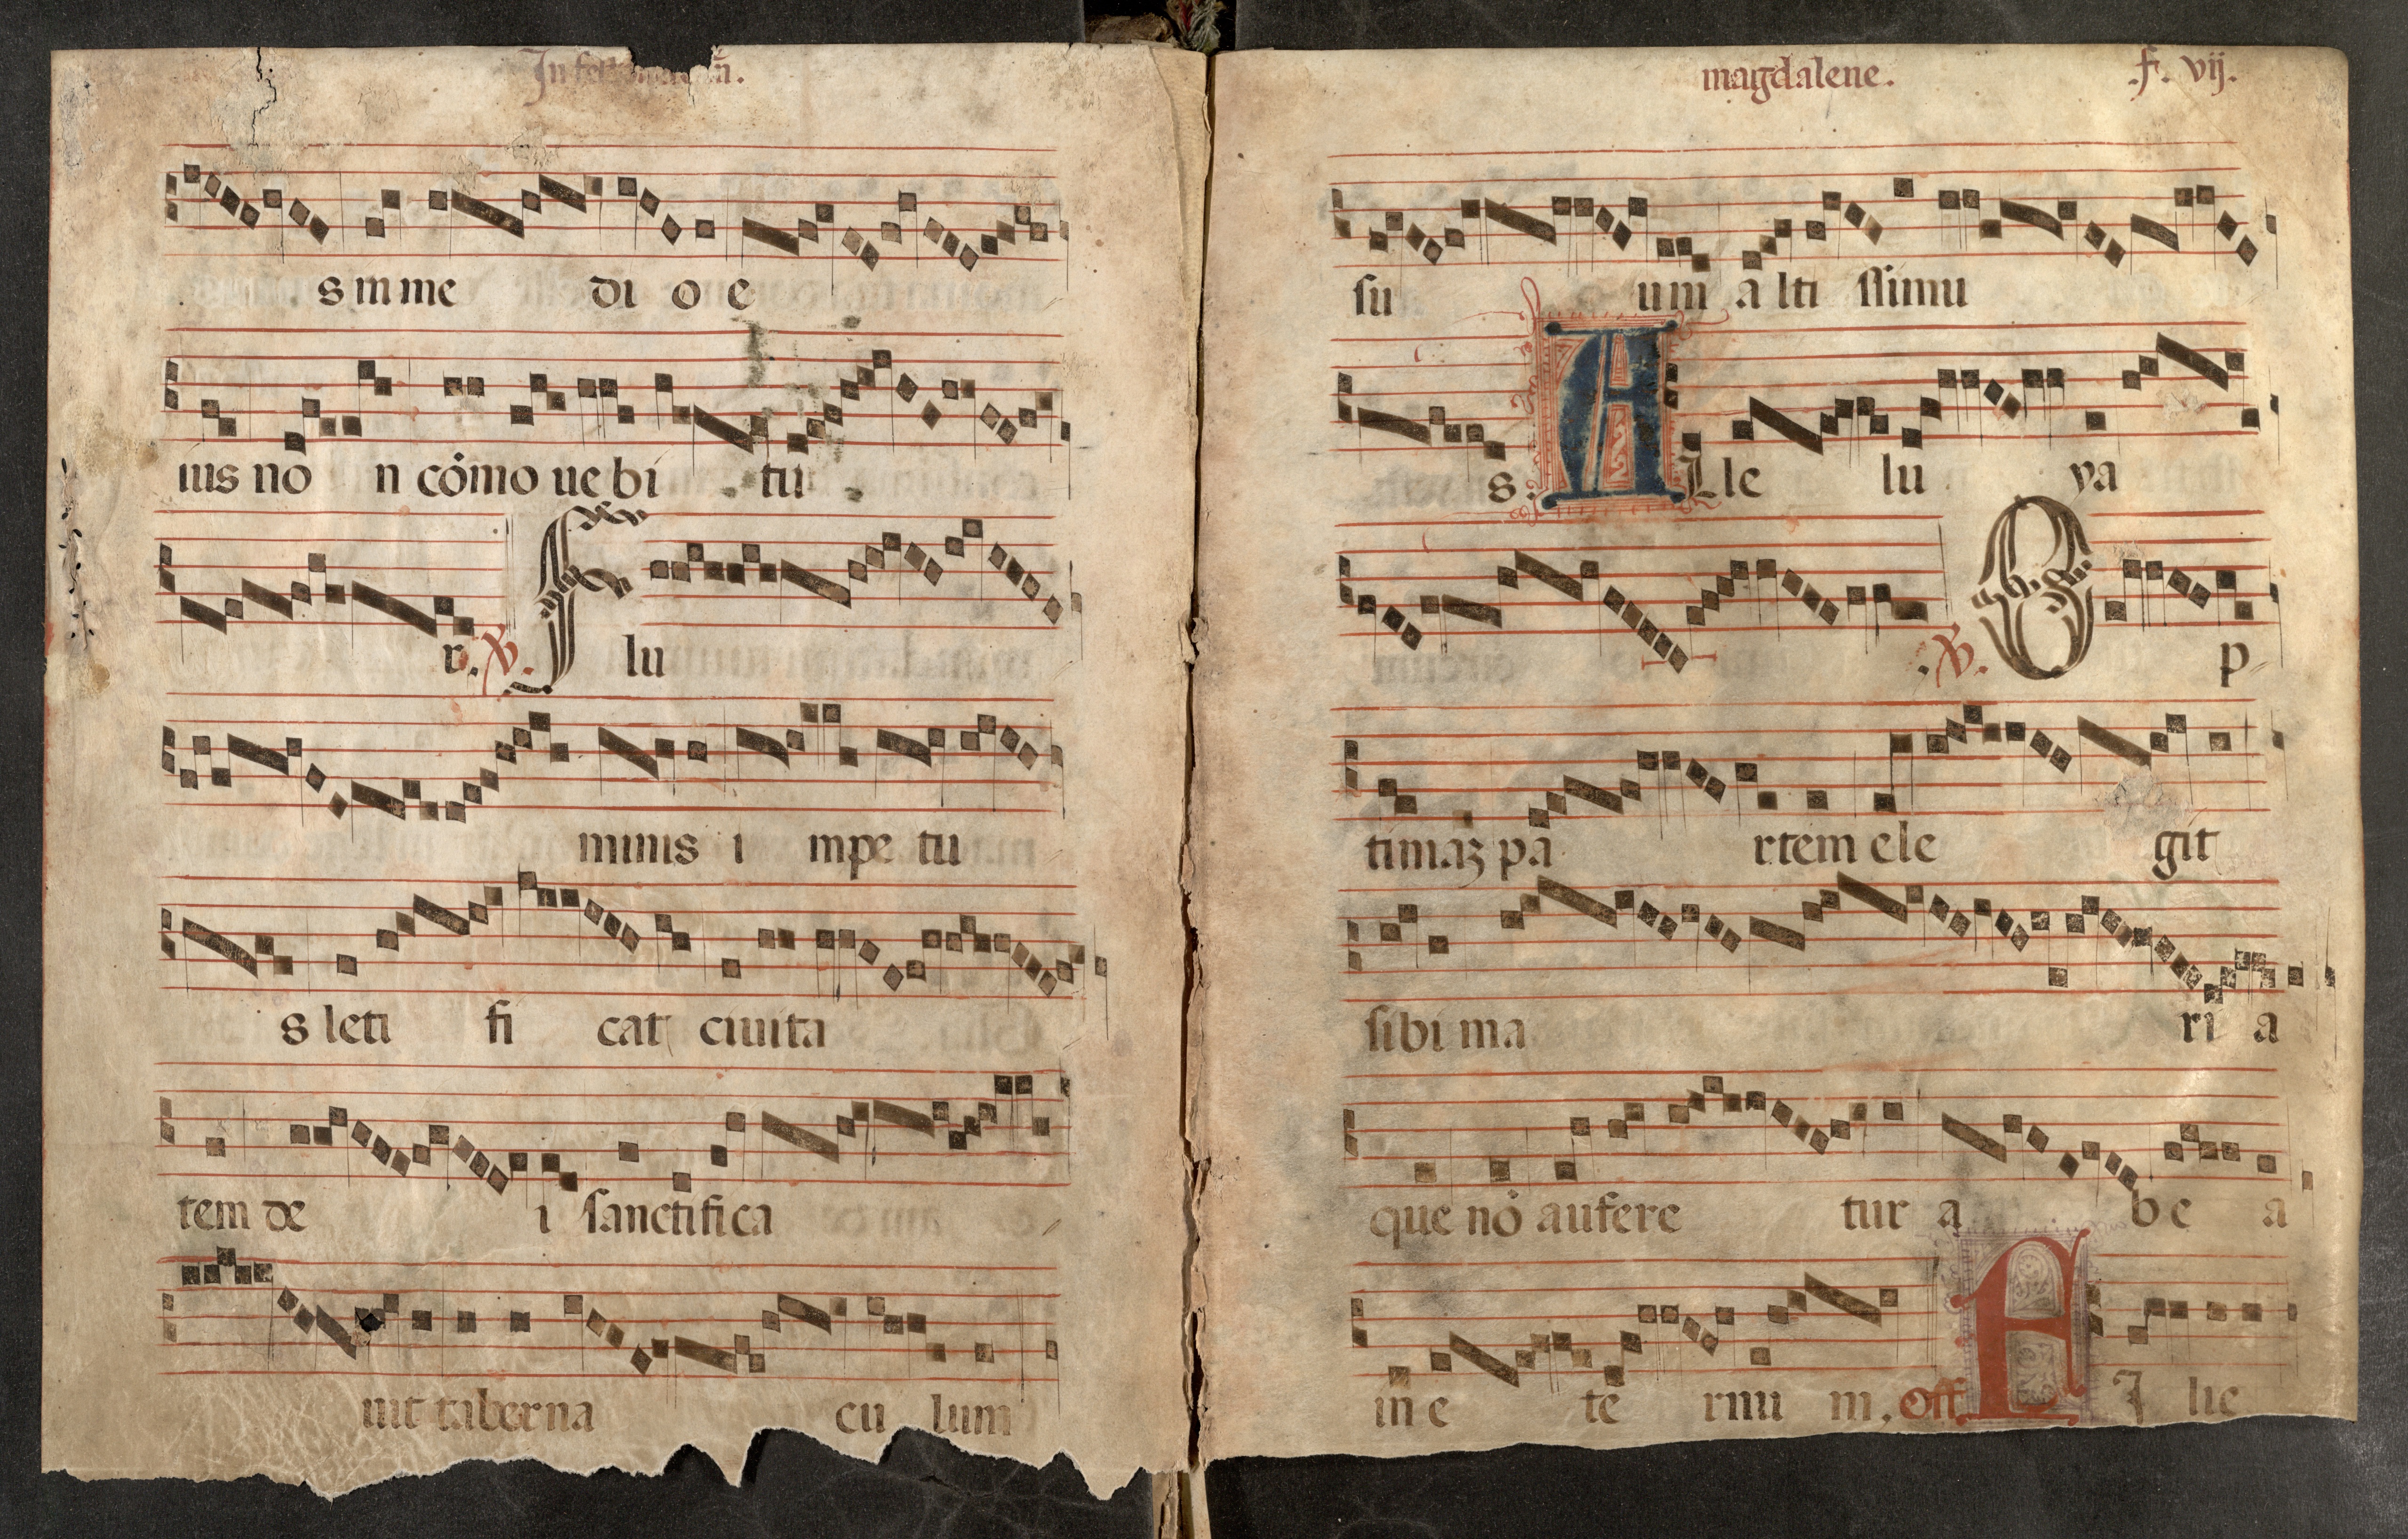 In fest
s in me di o e
ius nō n cōmo ue bi tu
r. ℣. F lu
minis i mpe tu
s leti fi cat ciuita
tem de i sanctifica
uit taberna cu lum
magdalene. .f. vij.
su um a lti ssimu
s. A Lle lu ya
. ℣. O p
timaꝫ pa rtem ele git
sibi ma ri a
que nō aufere tur a b e a
in e te rnu m. Off. F I lie